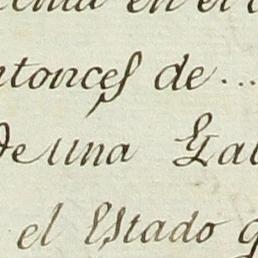 en el
entonces de...
de una Gal
el Estado q